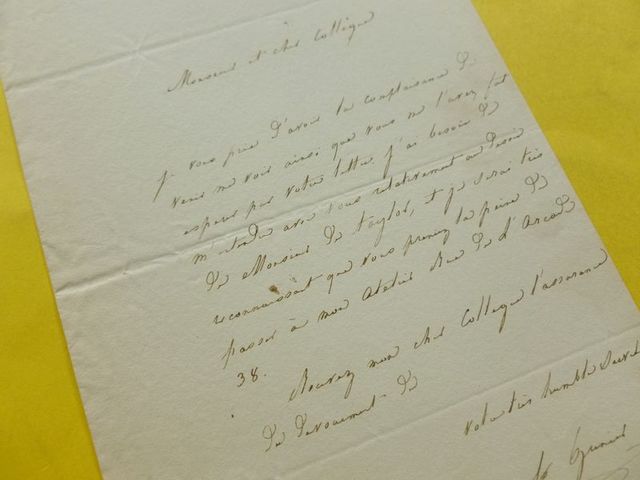 Monsieur et cher Collègue
je vous prie d'avoir la complaisance de
venir me voir ainsi que vous me l'avez fait
esperer par votre lettre j'ai besoin de
m'entendre avec vous relativement au dessin
de Monsieur de Taylor, et je serai très
reconnaissant que vous preniez la peine de
passer à mon atelier Rue de d'Arcade
38.
Recevez mon cher Collegue l'assurance
du devouement de
votre très humble